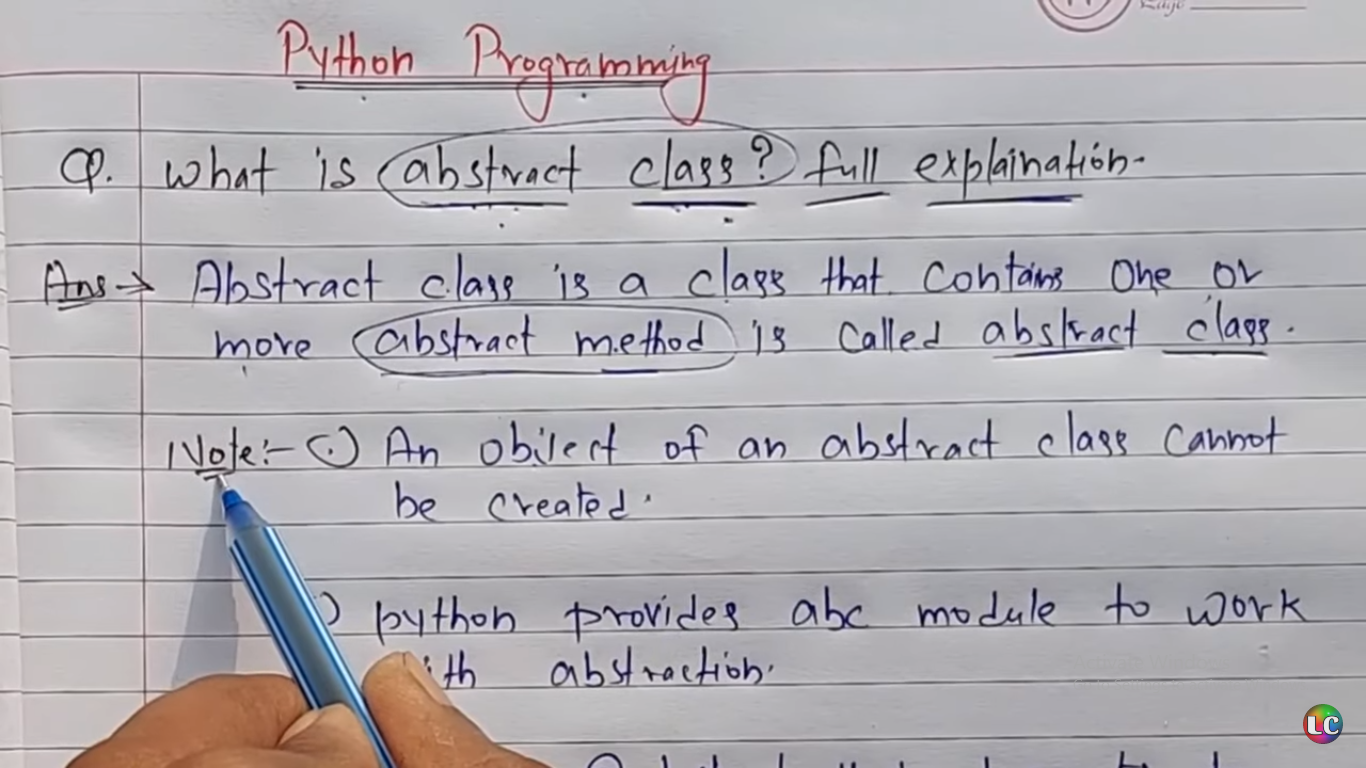 Page
Python Programming
Q. What is abstract class? full explaination.
Ans → Abstract class is a class that contains one or
more abstract method is called abstract class.
Note:- (.) An object of an abstract class cannot
be created.
) python provides abc module to work
ith abstraction.
LC